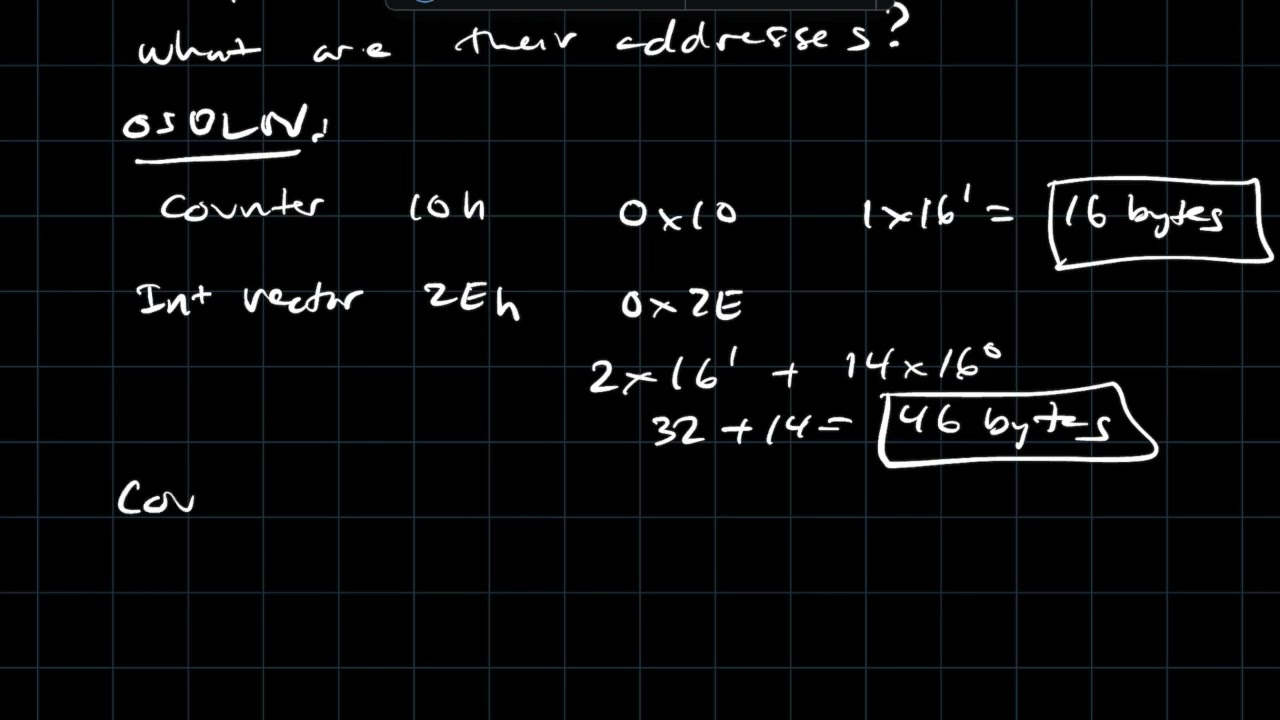 what are their addresses?
OSOLN.
Counter 10h 0x10 1x16¹ = 16 bytes
Int vector 2Eh 0x2E
2x16¹ + 14x16⁰
32+14= 46 bytes
Cou